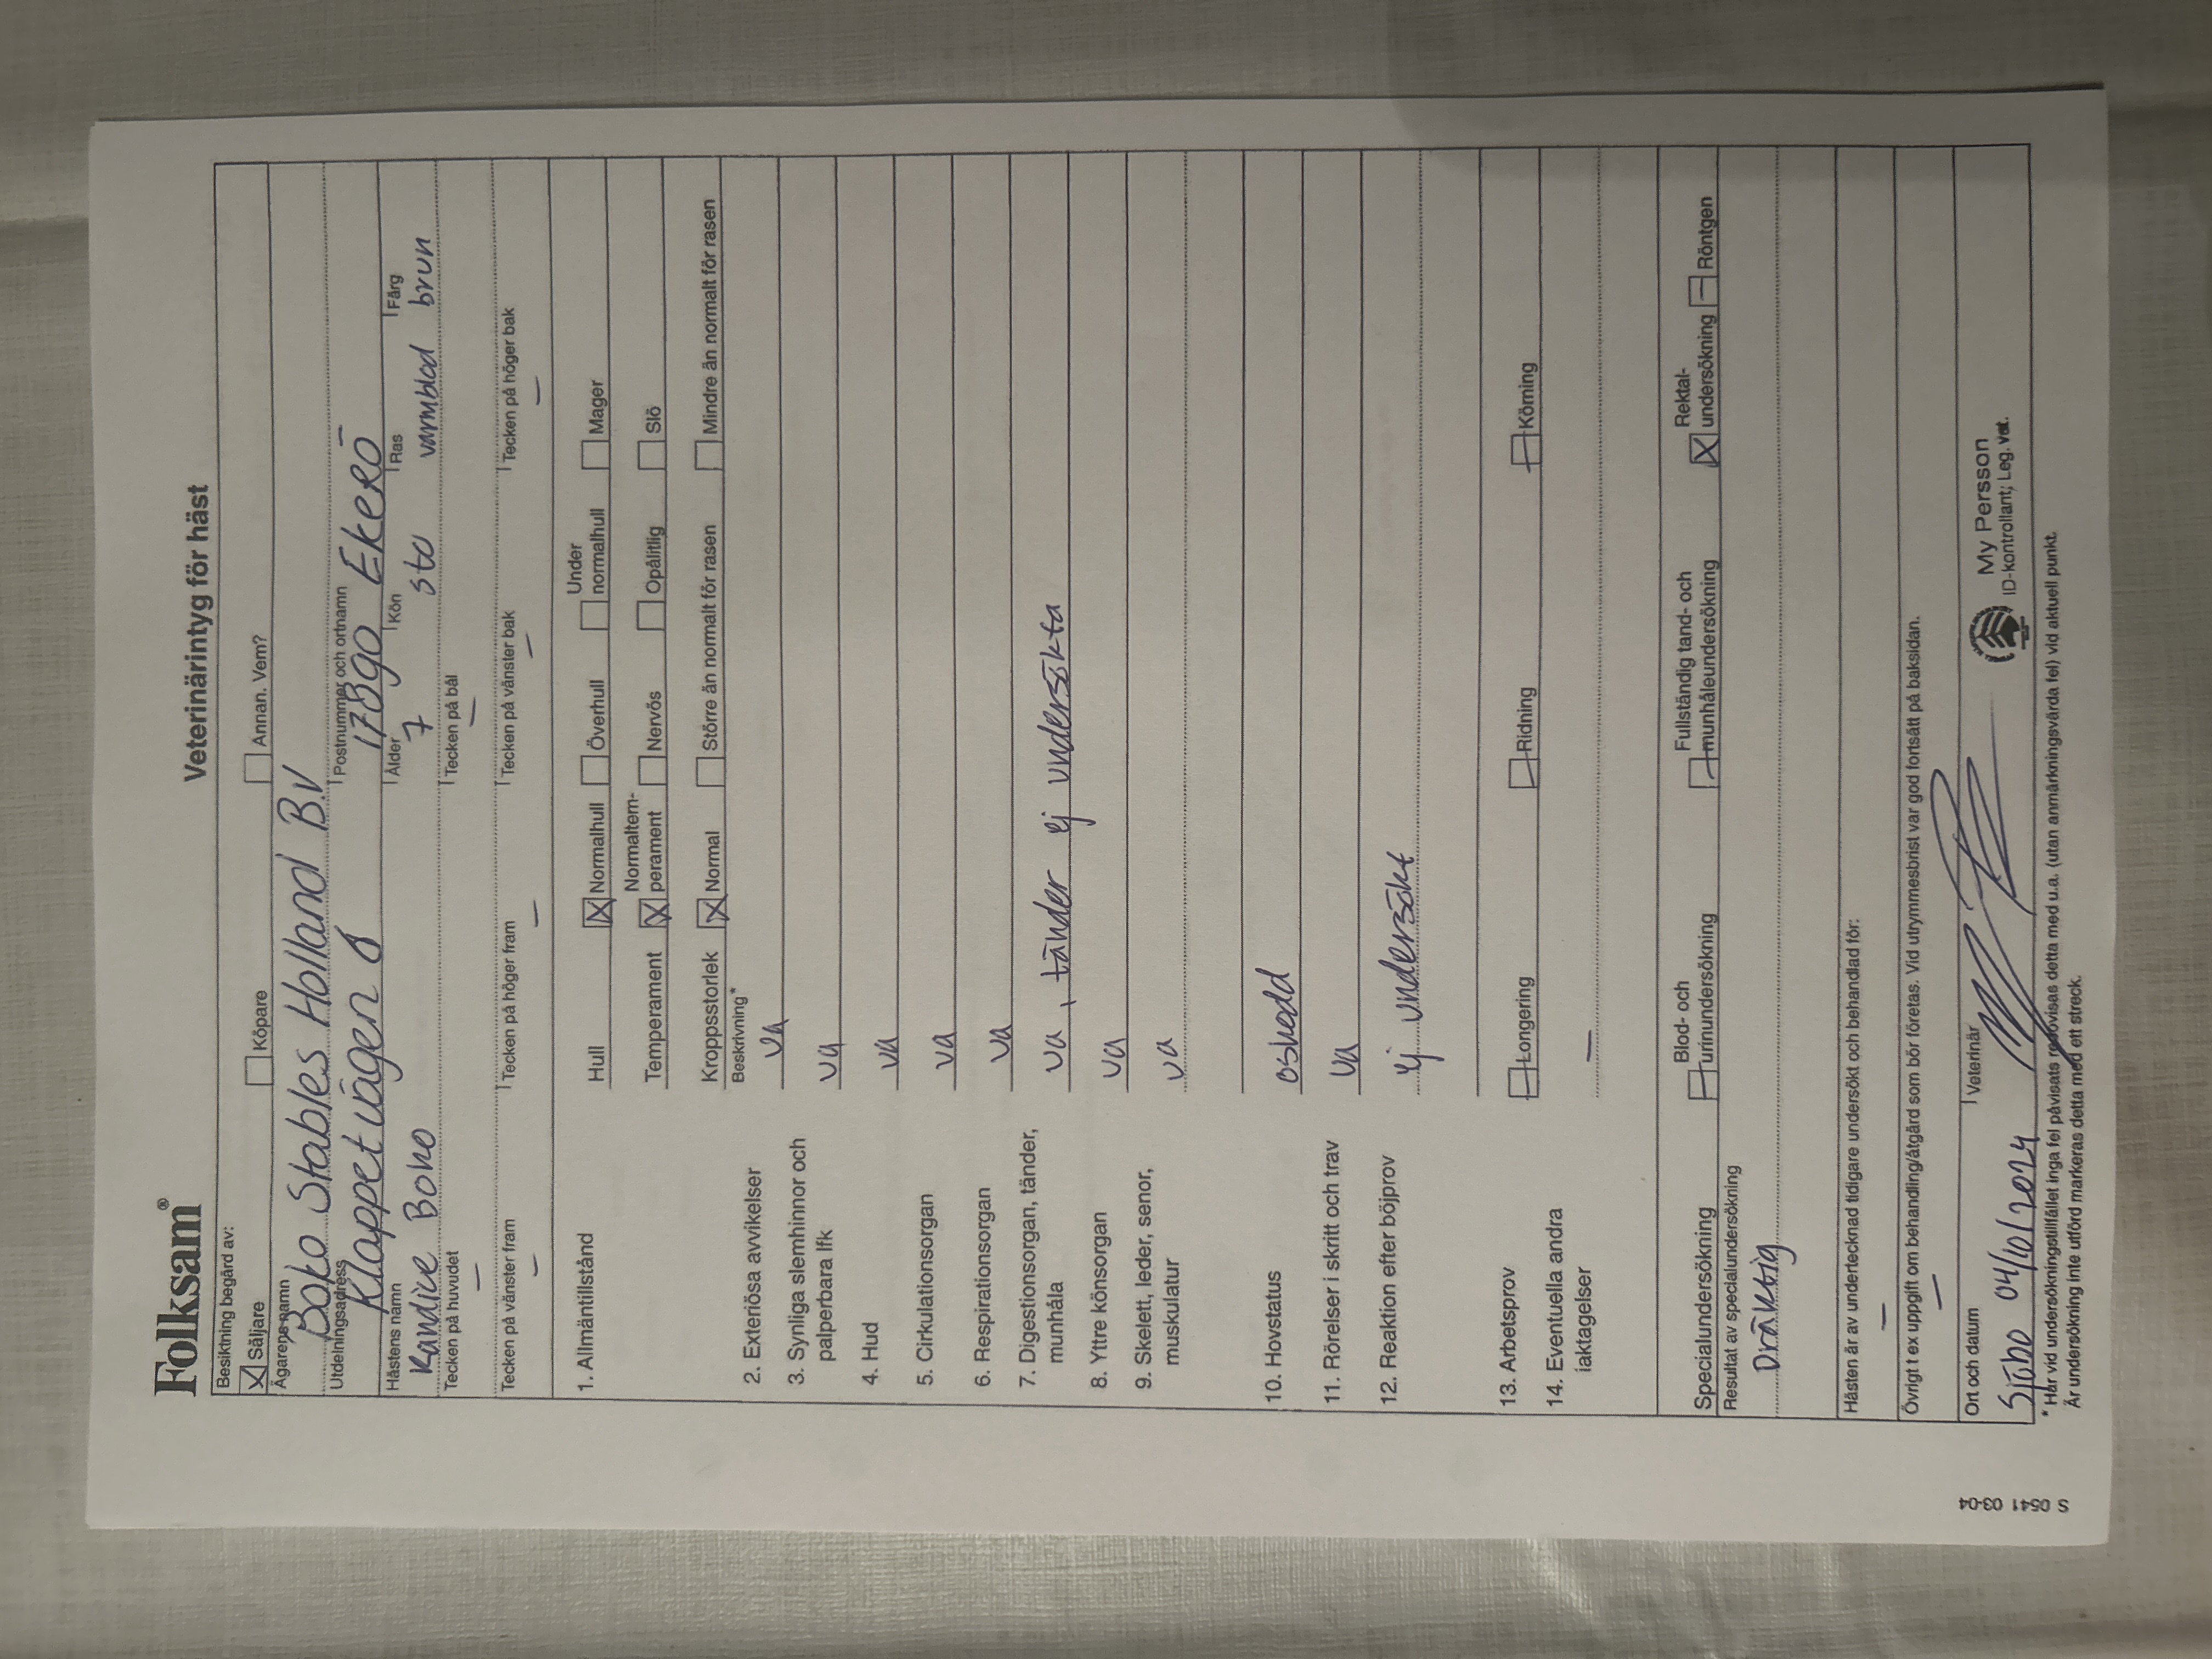 Folksam®
Veterinärintyg för häst
Besiktning begärd av:
Säljare Köpare Annan. Vem?
Ägarens namn
Boko Stables Holland B.V
Utdelningsadress Postnummer och ortnamn
Klappetvägen 8 17890 Ekerö
Hästens namn Ålder Kön Ras Färg
Kandice Boko 7 sto varmblod brun
Tecken på huvudet Tecken på bål
— —
Tecken på vänster fram Tecken på höger fram Tecken på vänster bak Tecken på höger bak
— — — —
1. Allmäntillstånd Hull Normalhull Överhull Under normalhull Mager
Temperament Normaltem-perament Nervös Opålitlig Slö
Kroppsstorlek Normal Större än normalt för rasen Mindre än normalt för rasen
Beskrivning*
2. Exteriösa avvikelser ua
3. Synliga slemhinnor och
palperbara lfk ua
4. Hud ua
5. Cirkulationsorgan ua
6. Respirationsorgan ua
7. Digestionsorgan, tänder,
munhåla ua, tänder ej undersökta
8. Yttre könsorgan ua
9. Skelett, leder, senor,
muskulatur ua
10. Hovstatus oskodd
11. Rörelser i skritt och trav ua
12. Reaktion efter böjprov ej undersökt
13. Arbetsprov Longering Ridning Körning
14. Eventuella andra
iaktagelser —
Specialundersökning Blod- och urinundersökning Fullständig tand- och munhåleundersökning Rektal-undersökning Röntgen
Resultat av specialundersökning
Dräktig
Hästen är av undertecknad tidigare undersökt och behandlad för:
—
Övrigt t ex uppgift om behandling/åtgärd som bör företas. Vid utrymmesbrist var god fortsätt på baksidan.
—
Ort och datum Veterinär
Sjöbo 04/10/2024
My Persson
ID-kontrollant; Leg. vet.
* Har vid undersökningstillfället inga fel påvisats redovisas detta med u.a. (utan anmärkningsvärda fel) vid aktuell punkt.
Är undersökning inte utförd markeras detta med ett streck.
S 0541 03-04